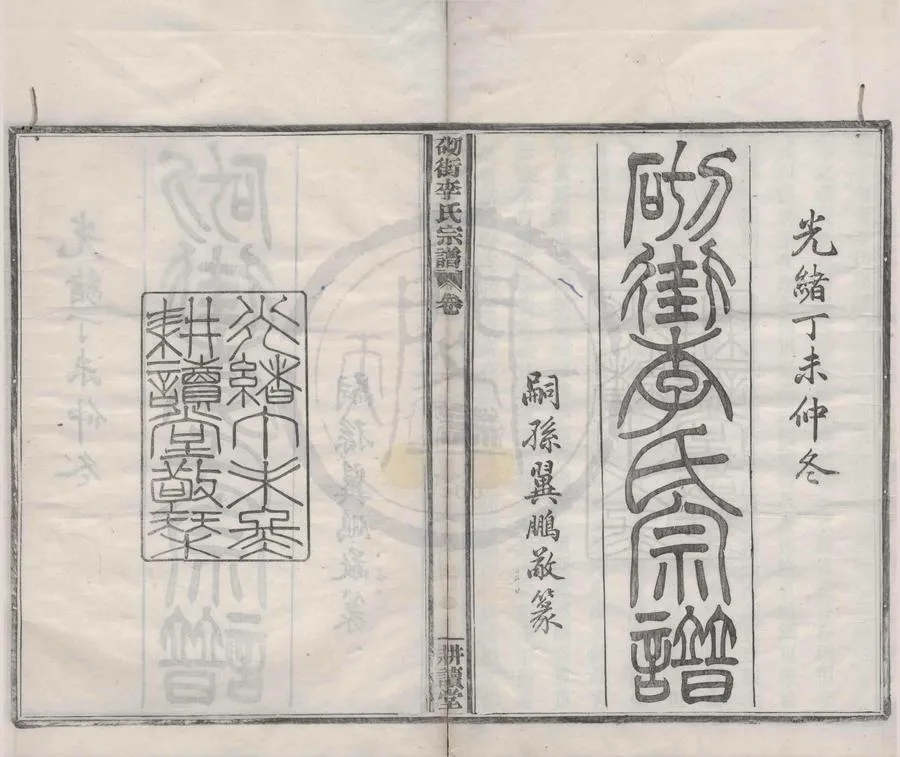 光緒丁未仲冬
砌街李氏宗譜
嗣孫翼鵬敬篆
砌街李氏宗譜
卷
耕讀堂
光緒丁未冬
耕讀堂敬琹